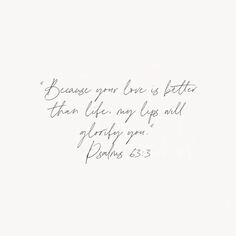 "Because your love is better
than life, my lips will
glorify you."
Psalms 63:3